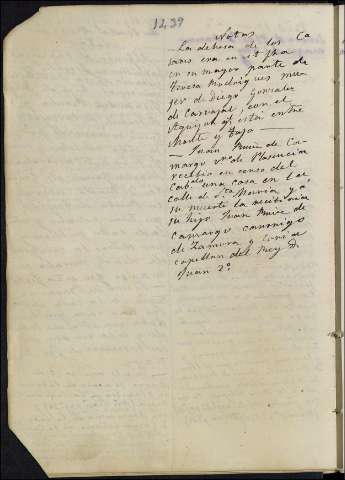 1439
Notas
La dehesa de los Ca
vares era en el fha
en su mayor parte de
Teresa Rodrigues mu
ger de Diego Gonzalez
de Carvajal, con el
q.e está entre
Monte y Tajo
— Juan Ruiz de Ca
margo v.no de Plasencia
recibio en censo del
Cab.do una casa en la
calle de S.ta Maria, y a
su muerte la recibió
su hijo Juan Ruiz de
Camargo canonigo
de Zamora y
capellan del Rey D.
Juan 2.º